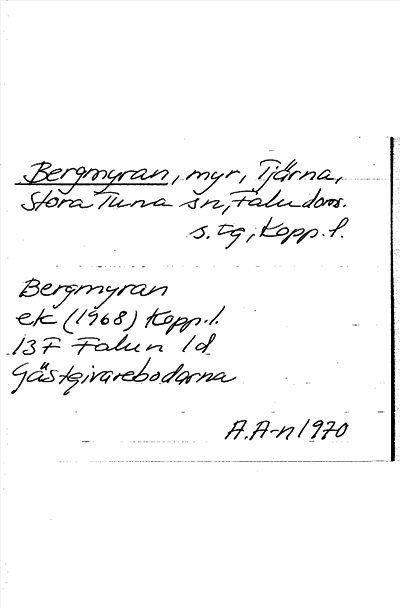 Bergmyran, myr, Tjärna,
Stora Tuna sn, Falu doms.
s. tg, Kopp. l.
Bergmyran
ek (1968) Kopp. l.
13F Falun 1d
Gästgivarebodarna
A.A-n 1970